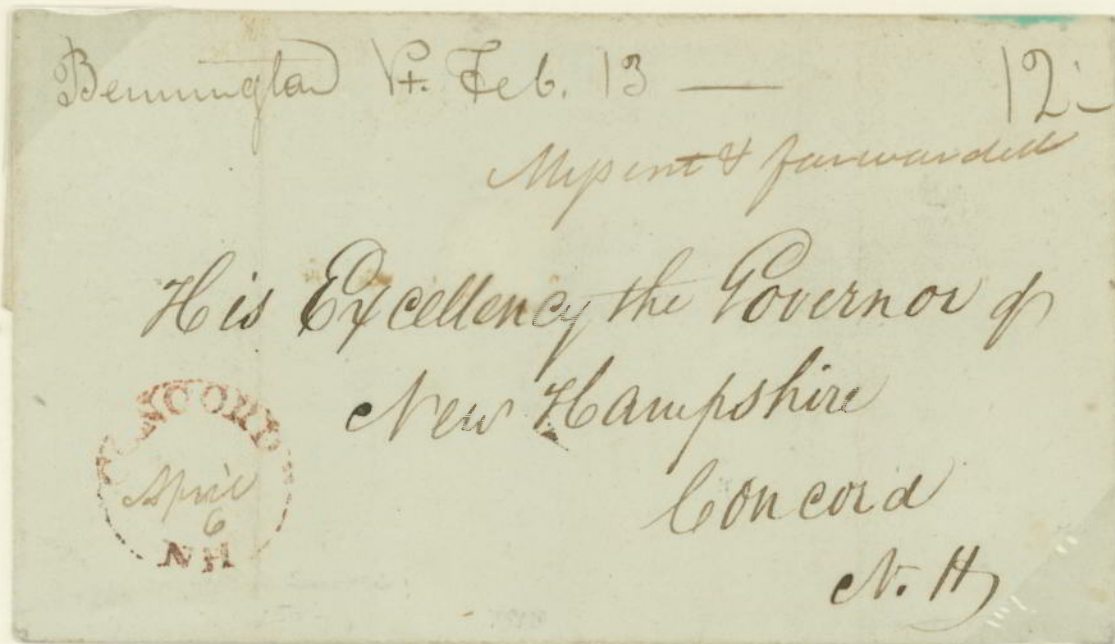 Bennington Vt. Feb. 13 — 12½
Missent & forwarded
His Excellency the Governor of
New Hampshire
Concord
N. H
CONCORD
April
6
NH